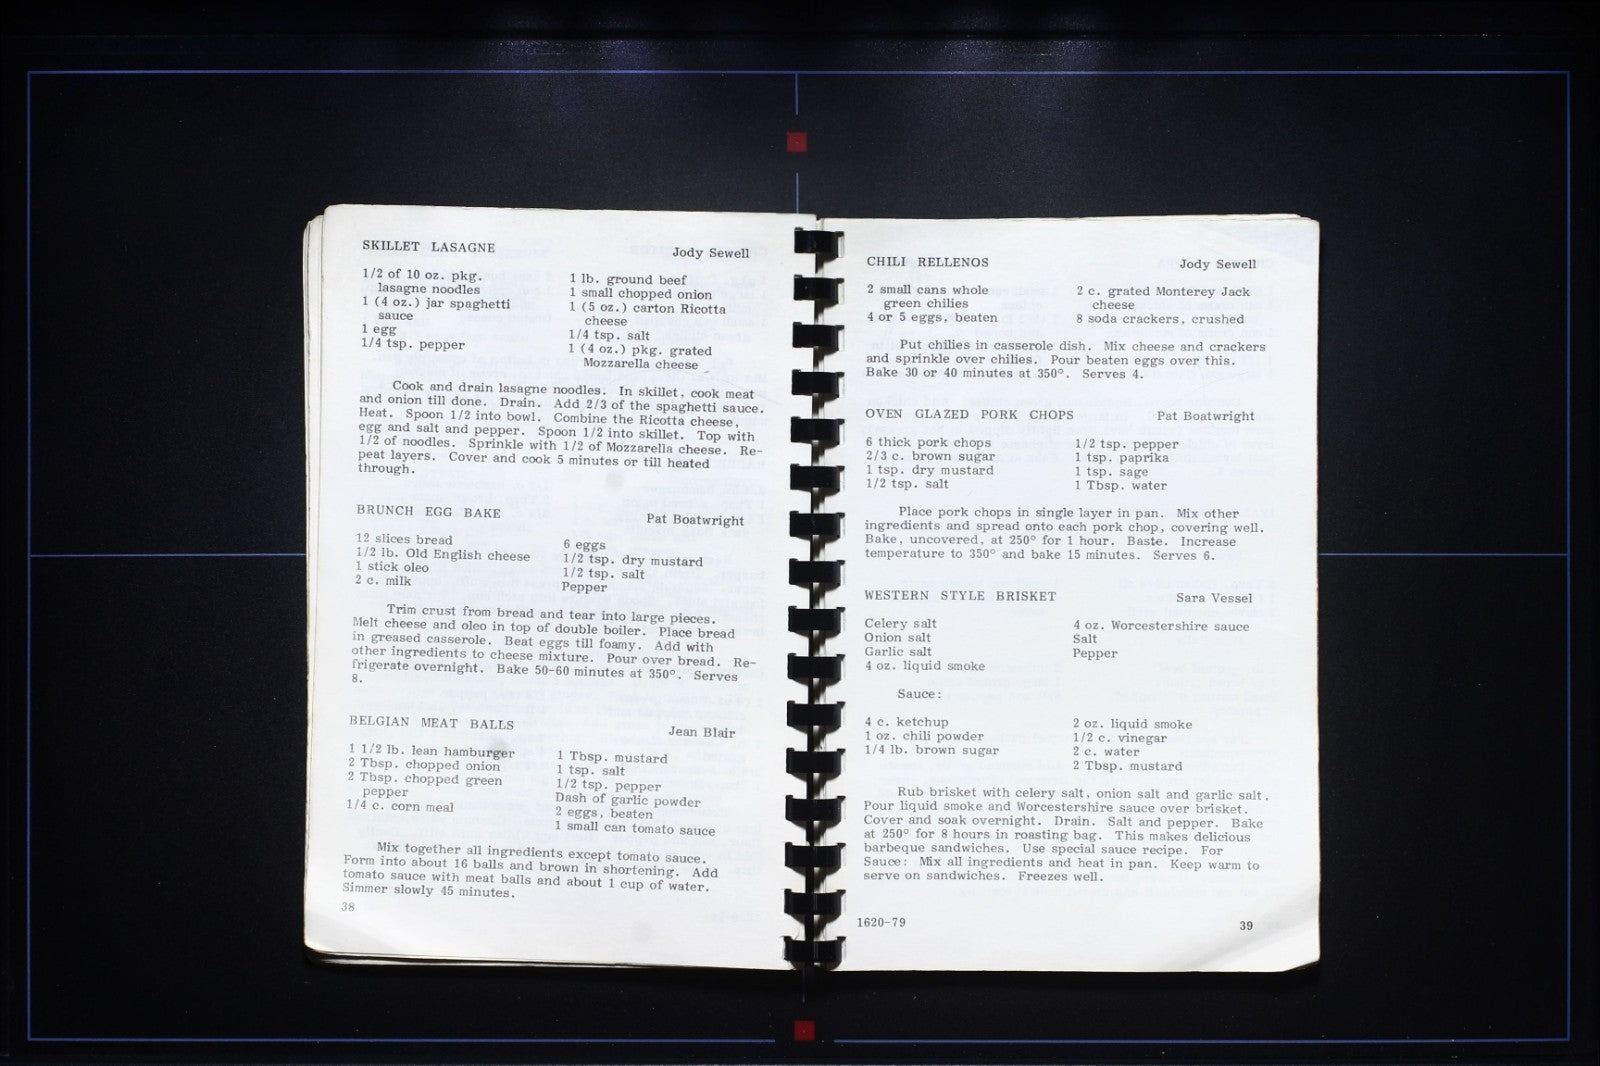 SKILLET LASAGNE
Jody Sewell
1/2 of 10 oz. pkg.
lasagne noodles
1 (4 oz.) jar spaghetti
sauce
1 egg
1/4 tsp. pepper
1 lb. ground beef
1 small chopped onion
1 (5 oz.) carton Ricotta
cheese
1/4 tsp. salt
1 (4 oz.) pkg. grated
Mozzarella cheese
Cook and drain lasagne noodles. In skillet, cook meat
and onion till done. Drain. Add 2/3 of the spaghetti sauce.
Heat. Spoon 1/2 into bowl. Combine the Ricotta cheese,
egg and salt and pepper. Spoon 1/2 into skillet. Top with
1/2 of noodles. Sprinkle with 1/2 of Mozzarella cheese. Re-
peat layers. Cover and cook 5 minutes or till heated
through.
BRUNCH EGG BAKE
Pat Boatwright
12 slices bread
1/2 lb. Old English cheese
1 stick oleo
2 c. milk
6 eggs
1/2 tsp. dry mustard
1/2 tsp. salt
Pepper
Trim crust from bread and tear into large pieces.
Melt cheese and oleo in top of double boiler. Place bread
in greased casserole. Beat eggs till foamy. Add with
other ingredients to cheese mixture. Pour over bread. Re-
frigerate overnight. Bake 50-60 minutes at 350°. Serves
8.
BELGIAN MEAT BALLS
Jean Blair
1 1/2 lb. lean hamburger
2 Tbsp. chopped onion
2 Tbsp. chopped green
pepper
1/4 c. corn meal
1 Tbsp. mustard
1 tsp. salt
1/2 tsp. pepper
Dash of garlic powder
2 eggs, beaten
1 small can tomato sauce
Mix together all ingredients except tomato sauce.
Form into about 16 balls and brown in shortening. Add
tomato sauce with meat balls and about 1 cup of water.
Simmer slowly 45 minutes.
38
CHILI RELLENOS
Jody Sewell
2 small cans whole
green chilies
4 or 5 eggs, beaten
2 c. grated Monterey Jack
cheese
8 soda crackers, crushed
Put chilies in casserole dish. Mix cheese and crackers
and sprinkle over chilies. Pour beaten eggs over this.
Bake 30 or 40 minutes at 350°. Serves 4.
OVEN GLAZED PORK CHOPS
Pat Boatwright
6 thick pork chops
2/3 c. brown sugar
1 tsp. dry mustard
1/2 tsp. salt
1/2 tsp. pepper
1 tsp. paprika
1 tsp. sage
1 Tbsp. water
Place pork chops in single layer in pan. Mix other
ingredients and spread onto each pork chop, covering well.
Bake, uncovered, at 250° for 1 hour. Baste. Increase
temperature to 350° and bake 15 minutes. Serves 6.
WESTERN STYLE BRISKET
Sara Vessel
Celery salt
Onion salt
Garlic salt
4 oz. liquid smoke
4 oz. Worcestershire sauce
Salt
Pepper
Sauce:
4 c. ketchup
1 oz. chili powder
1/4 lb. brown sugar
2 oz. liquid smoke
1/2 c. vinegar
2 c. water
2 Tbsp. mustard
Rub brisket with celery salt, onion salt and garlic salt.
Pour liquid smoke and Worcestershire sauce over brisket.
Cover and soak overnight. Drain. Salt and pepper. Bake
at 250° for 8 hours in roasting bag. This makes delicious
barbeque sandwiches. Use special sauce recipe. For
Sauce: Mix all ingredients and heat in pan. Keep warm to
serve on sandwiches. Freezes well.
1620-79
39